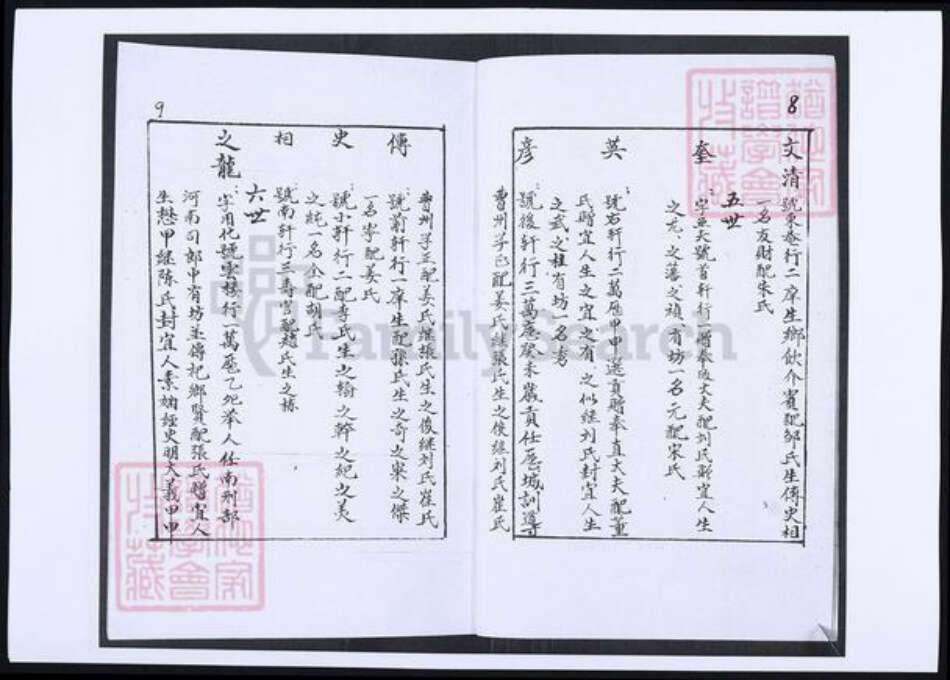 8
文清 號東菴行二庠生鄉飲介賓配鄒氏生傳史相
一名友財配朱氏
五世
奎 字重天號首軒行一贈奉政大夫配刘氏贈宜人生
之元之藩之禎有坊一名元配宋氏
英 號右軒行二萬厯甲申選貢贈奉直大夫配董
氏贈宜人生之宜之有之似继刘氏封宜人生
之武之柱有坊一名秀
彦 號後軒行三萬厯癸未嵗貢任歷城訓導
曹州学正配姜氏继張氏生之俊继刘氏崔氏
9
曹州学正配姜氏继張氏生之俊继刘氏崔氏
傳 號前軒行一庠生配孫氏生之奇之宋之傑
一名字配姜氏
史 號小軒行二配李氏生之翰之幹之紀之美
之純一名全配胡氏
相 號南軒行三壽官配趙氏生之楨
六世
之龍 字用化號雲樓行一萬厯乙夘举人任南刑部
河南司郎中有坊並傳祀鄉賢配張氏贈宜人
生懋甲继陈氏封宜人素嫻經史明大義甲申
FamilySearch